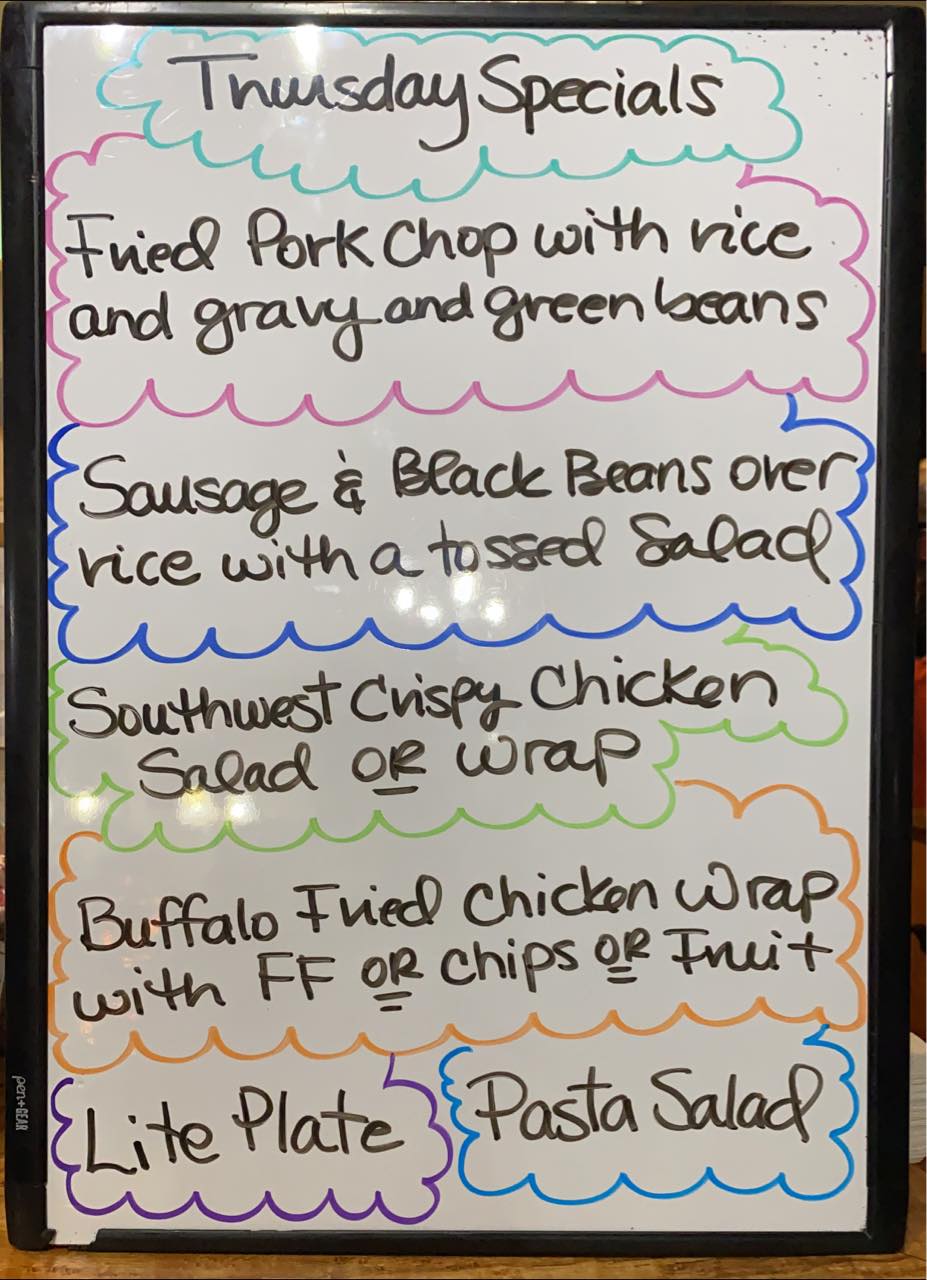 Thursday Specials
Fried Pork Chop with rice
and gravy and green beans
Sausage & Black Beans over
rice with a tossed Salad
Southwest Crispy Chicken
Salad OR Wrap
Buffalo Fried Chicken Wrap
with FF OR chips OR Fruit
Lite Plate
Pasta Salad
pen+GEAR